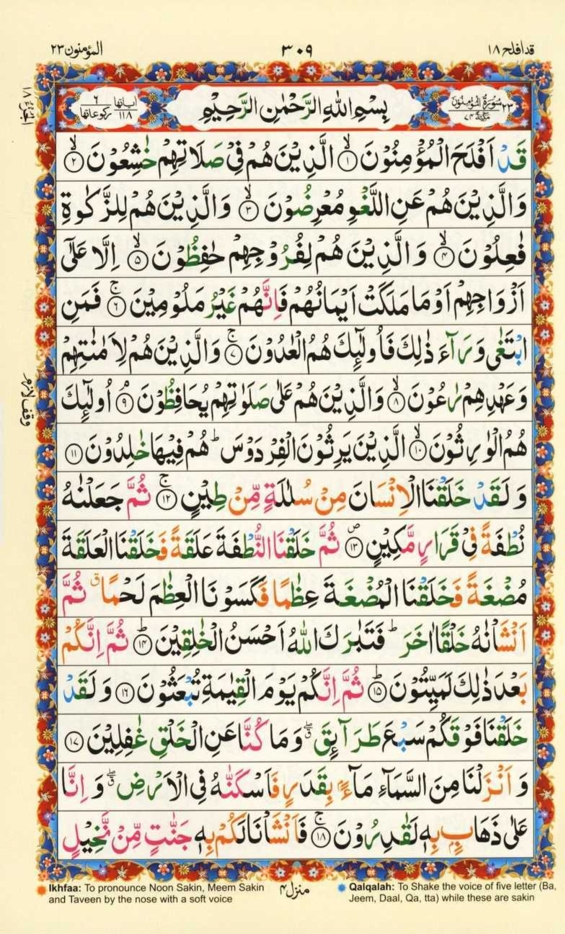 قد افلح ۱۸
۳۰۹
المؤمنون ۲۳
سُوْرَةُ الْمُؤْمِنُوْنَ ۲۳
مَكِّيَّةٌ ۷۴
بِسْمِ اللهِ الرَّحْمٰنِ الرَّحِيْمِ
اٰيَاتُهَا ۱۱۸
رُكُوْعَاتُهَا ۶
قَدْ اَفْلَحَ الْمُؤْمِنُوْنَ ۙ‏﴿۱﴾ الَّذِيْنَ هُمْ فِيْ صَلَاتِهِمْ خٰشِعُوْنَ ۙ‏﴿۲﴾
وَالَّذِيْنَ هُمْ عَنِ اللَّغْوِ مُعْرِضُوْنَ ۙ‏﴿۳﴾ وَالَّذِيْنَ هُمْ لِلزَّكٰوةِ
فٰعِلُوْنَ ۙ‏﴿۴﴾ وَالَّذِيْنَ هُمْ لِفُرُوْجِهِمْ حٰفِظُوْنَ ۙ‏﴿۵﴾ اِلَّا عَلٰٓى
اَزْوَاجِهِمْ اَوْ مَا مَلَكَتْ اَيْمَانُهُمْ فَاِنَّهُمْ غَيْرُ مَلُوْمِيْنَ ۚ‏﴿۶﴾ فَمَنِ
ابْتَغٰى وَرَآءَ ذٰلِكَ فَاُولٰٓئِكَ هُمُ الْعٰدُوْنَ ۚ‏﴿۷﴾ وَالَّذِيْنَ هُمْ لِاَمٰنٰتِهِمْ
وَعَهْدِهِمْ رٰعُوْنَ ۙ‏﴿۸﴾ وَالَّذِيْنَ هُمْ عَلٰى صَلَوٰتِهِمْ يُحَافِظُوْنَ ۘ‏﴿۹﴾ اُولٰٓئِكَ
هُمُ الْوٰرِثُوْنَ ۙ‏﴿۱۰﴾ الَّذِيْنَ يَرِثُوْنَ الْفِرْدَوْسَ ؕ هُمْ فِيْهَا خٰلِدُوْنَ ﴿۱۱﴾
وَلَقَدْ خَلَقْنَا الْاِنْسَانَ مِنْ سُلٰلَةٍ مِّنْ طِيْنٍ ۚ‏﴿۱۲﴾ ثُمَّ جَعَلْنٰهُ
نُطْفَةً فِيْ قَرَارٍ مَّكِيْنٍ ۖ‏﴿۱۳﴾ ثُمَّ خَلَقْنَا النُّطْفَةَ عَلَقَةً فَخَلَقْنَا الْعَلَقَةَ
مُضْغَةً فَخَلَقْنَا الْمُضْغَةَ عِظٰمًا فَكَسَوْنَا الْعِظٰمَ لَحْمًا ۗ ثُمَّ
اَنْشَاْنٰهُ خَلْقًا اٰخَرَ ؕ فَتَبٰرَكَ اللهُ اَحْسَنُ الْخٰلِقِيْنَ ؕ‏﴿۱۴﴾ ثُمَّ اِنَّكُمْ
بَعْدَ ذٰلِكَ لَمَيِّتُوْنَ ؕ‏﴿۱۵﴾ ثُمَّ اِنَّكُمْ يَوْمَ الْقِيٰمَةِ تُبْعَثُوْنَ ﴿۱۶﴾ وَلَقَدْ
خَلَقْنَا فَوْقَكُمْ سَبْعَ طَرَآئِقَ ۖ وَمَا كُنَّا عَنِ الْخَلْقِ غٰفِلِيْنَ ﴿۱۷﴾
وَاَنْزَلْنَا مِنَ السَّمَآءِ مَآءًۢ بِقَدَرٍ فَاَسْكَنّٰهُ فِي الْاَرْضِ ۖ وَاِنَّا
عَلٰى ذَهَابٍۢ بِهٖ لَقٰدِرُوْنَ ۚ‏﴿۱۸﴾ فَاَنْشَاْنَا لَكُمْ بِهٖ جَنّٰتٍ مِّنْ نَّخِيْلٍ
وقف لازم
منزل ۴
Ikhfaa: To pronounce Noon Sakin, Meem Sakin
and Taveen by the nose with a soft voice
Qalqalah: To Shake the voice of five letter (Ba,
Jeem, Daal, Qa, tta) while these are sakin